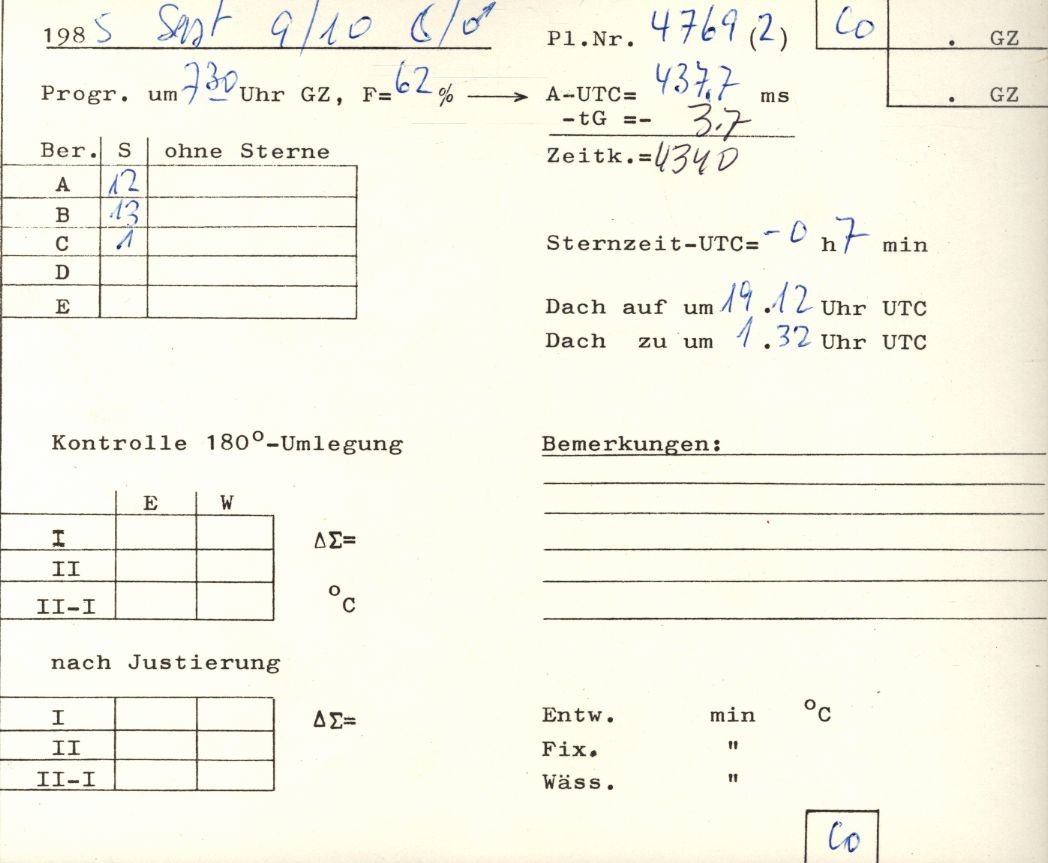 1985 Sept 9/10 ☾/♂ Pl.Nr. 4769 (2) Co . GZ
Progr. um 7³⁰ Uhr GZ, F=62% → A-UTC= 437.7 ms . GZ
-tG =- 3.7
Ber. S ohne Sterne Zeitk.=4340
A 12
B 13
C 1 Sternzeit-UTC=-0 h 7 min
D
E Dach auf um 19.12 Uhr UTC
Dach zu um 1.32 Uhr UTC
Kontrolle 180°-Umlegung Bemerkungen:
E W
I ΔΣ=
II
II-I °C
nach Justierung
I ΔΣ= Entw. min °C
II Fix. "
II-I Wäss. "
Co